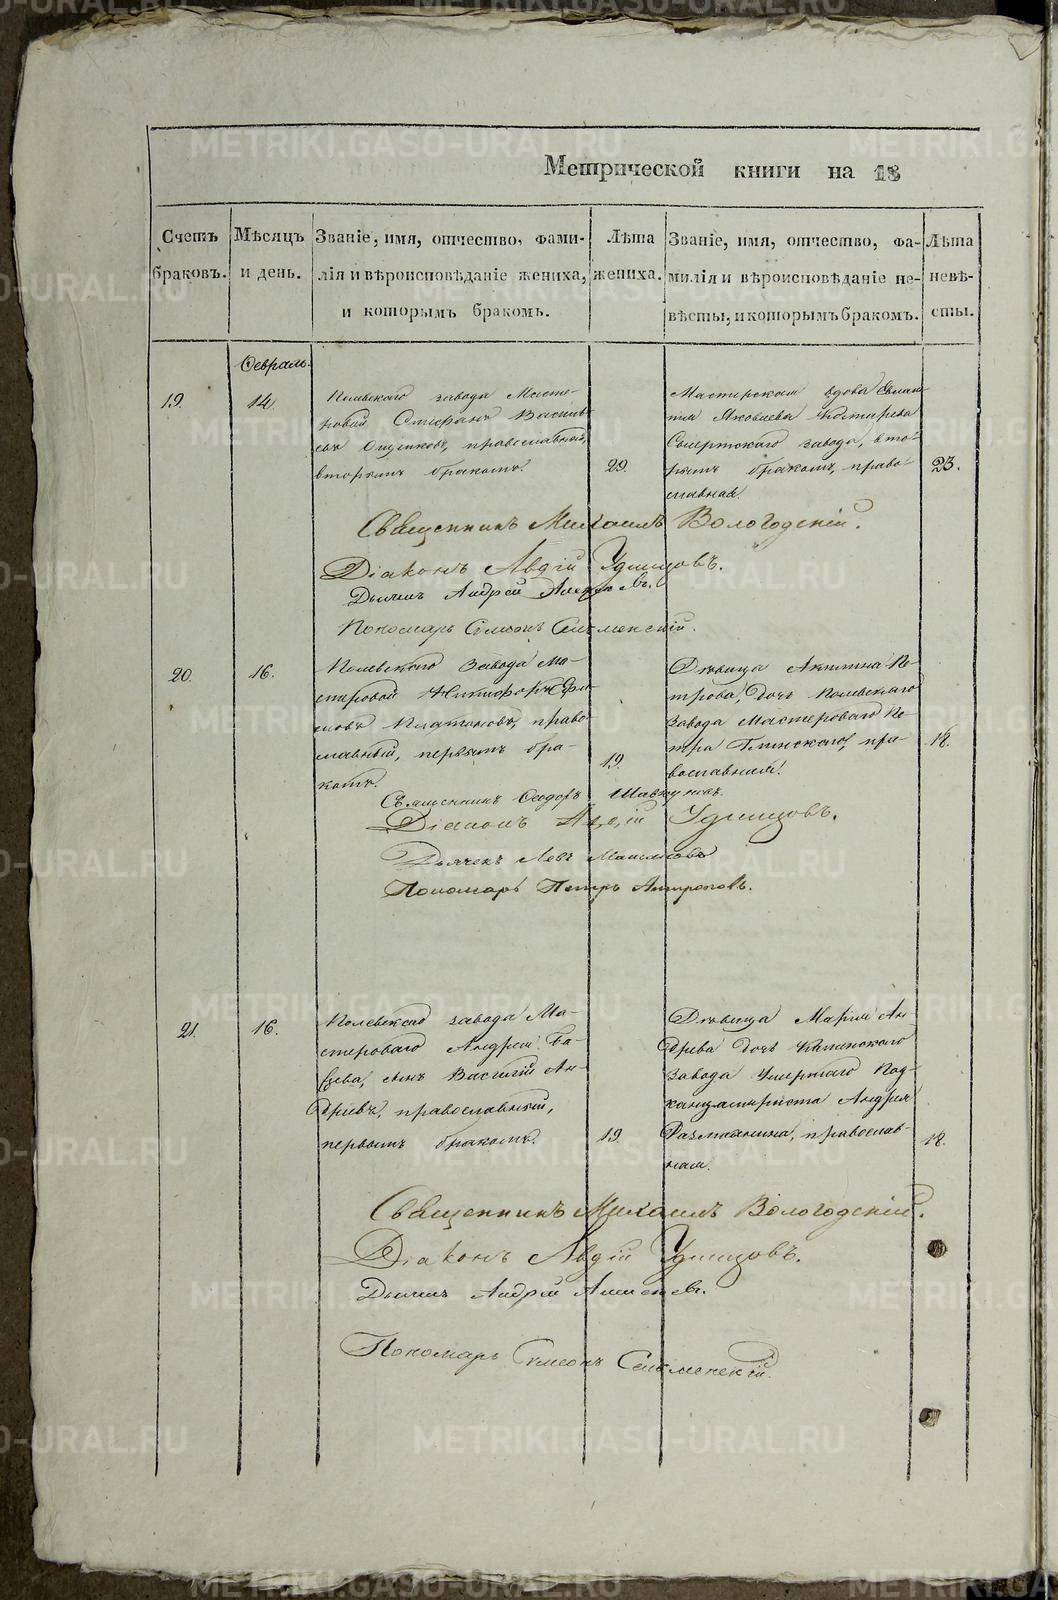 Метрической книги на 18
Счетъ браковъ.
Мѣсяцъ и день.
Званіе, имя, отчество, фами-
лія и вѣроисповѣданіе жениха,
и которымъ бракомъ.
Лѣта
жениха.
Званіе, имя, отчество, фа-
милія и вѣроисповѣданіе не-
вѣсты, и которымъ бракомъ.
Лѣта
невѣ-
сты.
Февраль.
19.
14.
Полевскаго завода Масте-
ровой Стефанъ Василь
евъ православный,
вторымъ бракомъ.
29.
Мастерская вдова
Яковлева
Сысертскаго завода, вто-
рымъ бракомъ, право-
славная.
23.
Священникъ Михаилъ Вологодскій.
Діаконъ Авдій Удинцовъ.
Дьячекъ Андрей
Пономарь Симеонъ
20.
16.
Полевскаго завода Ма-
стеровой Никифоръ
Платоновъ, право
славный, первымъ бра-
комъ.
19.
Дѣвица Акилина Пе-
трова, дочь Полевскаго
завода Мастероваго Пе-
тра Глинскаго, пра-
вославная.
18.
Священникъ Ѳеодоръ
Діаконъ Авдій Удинцовъ.
Дьячекъ Левъ
Пономарь Петръ Антроповъ.
21.
16.
Полевскаго завода Ма-
стероваго Андрея
сынъ Василій Ан-
дреевъ, православный,
первымъ бракомъ.
19.
Дѣвица Марія Ан-
дреева дочь
завода Умершаго Код-
канцеляриста Андрея
православ-
ная.
18.
Священникъ Михаилъ Вологодскій.
Діаконъ Авдій Удинцовъ.
Дьячекъ Андрей
Пономарь Симеонъ
METRIKI.GASO-URAL.RU